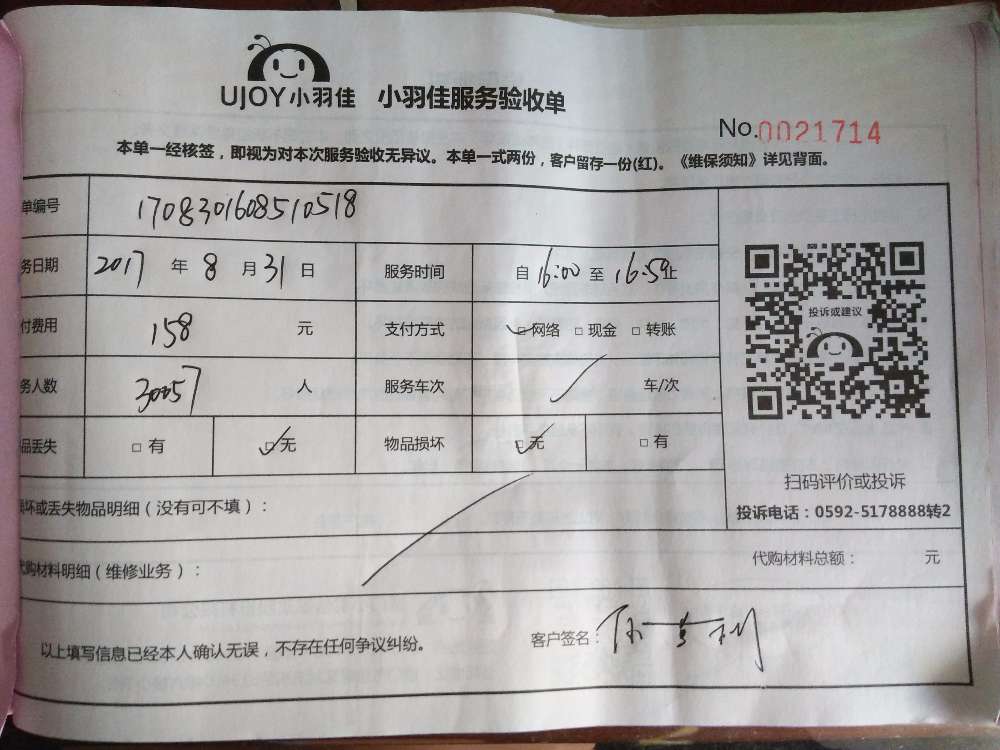 UJOY小羽佳 小羽佳服务验收单
No.0021714
本单一经核签，即视为对本次服务验收无异议。本单一式两份，客户留存一份(红)。《维保须知》详见背面。
单编号 1708301608510518
务日期 2017 年 8 月 31 日 服务时间 自 16:00 至 16:59 止
付费用 158 元 支付方式 □网络 □现金 □转账
务人数 30057 人 服务车次 车/次
品丢失 □有 □无 物品损坏 □无 □有
投诉或建议
扫码评价或投诉
投诉电话：0592-5178888转2
损坏或丢失物品明细（没有可不填）：
代购材料明细（维修业务）： 代购材料总额： 元
以上填写信息已经本人确认无误，不存在任何争议纠纷。 客户签名：